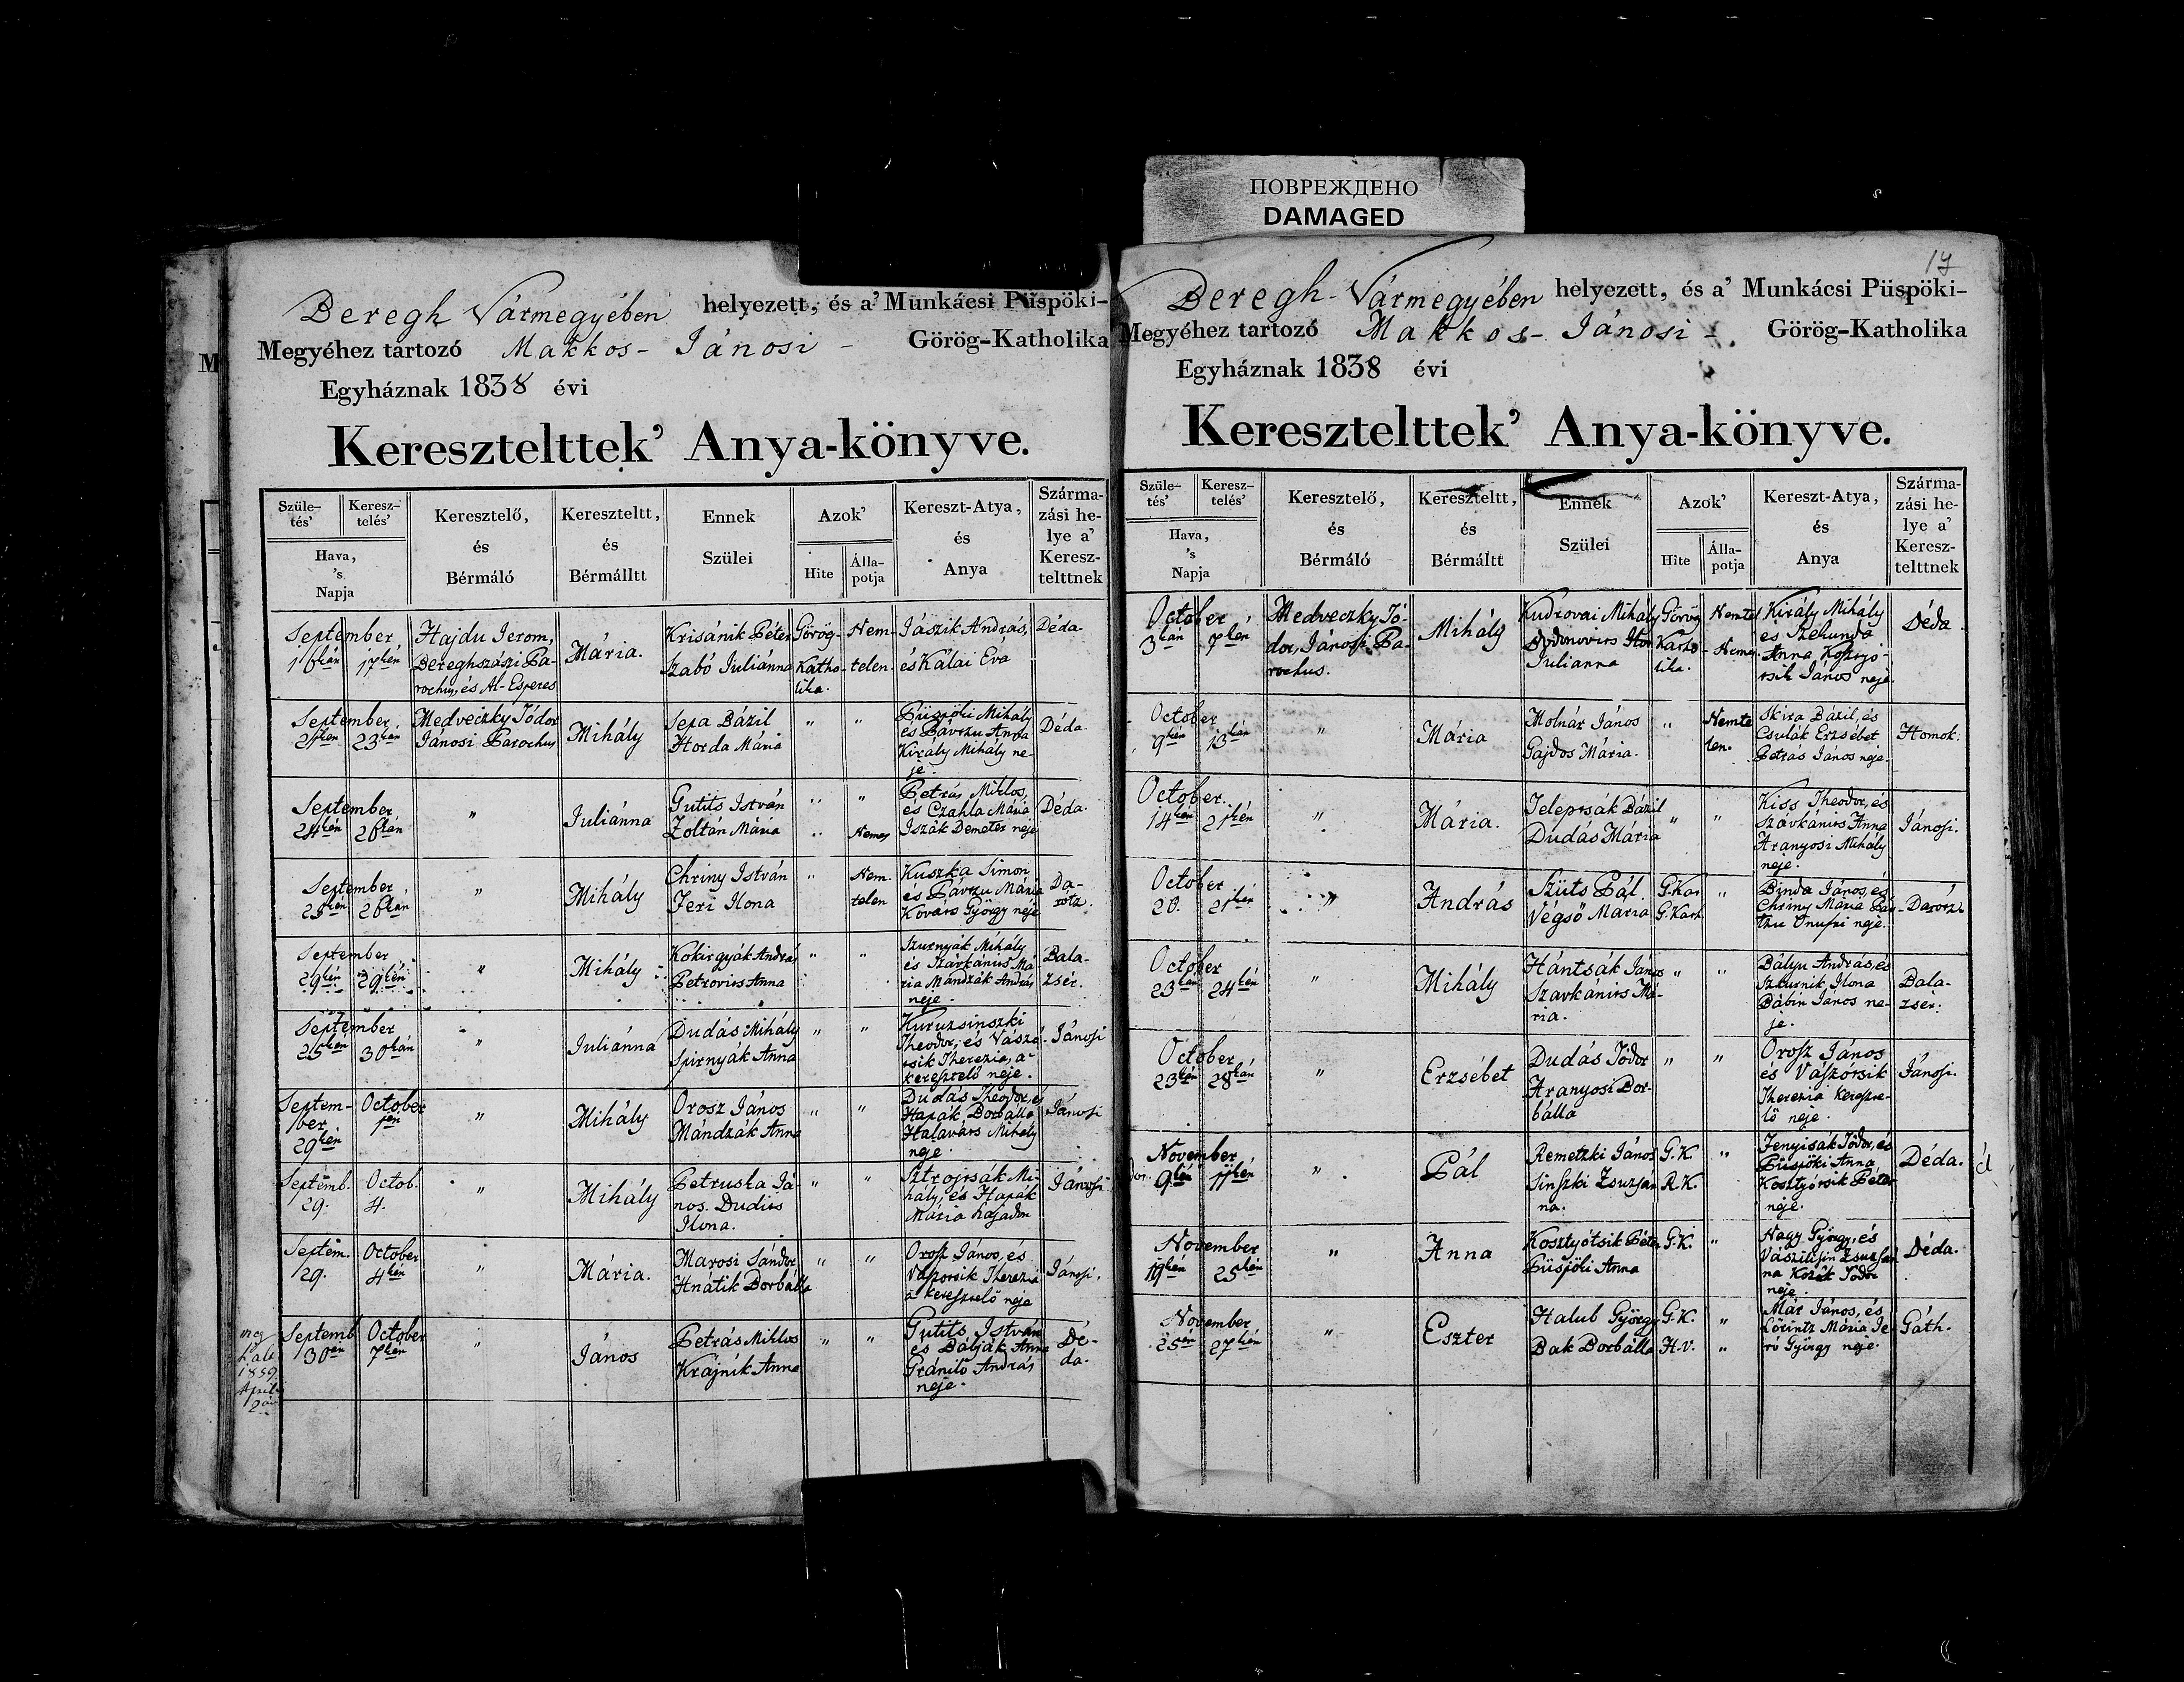 ПОВРЕЖДЕНО
DAMAGED
Beregh Vármegyében helyezett, és a' Munkácsi Püspöki-
Megyéhez tartozó Makkos-Jánosi - Görög-Katholika
Egyháznak 1838 évi
Keresztelttek' Anya-könyve.
Szüle-
tés'
Keresz-
telés'
Hava,
's
Napja
Keresztelő,
és
Bérmáló
Kereszteltt,
és
Bérmálltt
Ennek
Szülei
Azok'
Hite
Álla-
potja
Kereszt-Atya,
és
Anya
Szárma-
zási he-
lye a'
Keresz-
telttnek
September
16kán 17kén
Hajdu Jerom,
Bereghszászi Pa-
rochus, és Al-Esperes
Mária.
Krisánik Péter
Szabó Juliánna
Görög-
Katho-
lika.
Nem-
telen-
Jászik András,
és Kálai Éva
Déda
September
21kén 23kán
Medveczky Tódor
Jánosi Parochus
Mihály
Sepa Bázil
Horda Mária
" "
Püspöki Mihály
és Pávszu Anna
Király Mihály ne-
je.
Déda.
September
24kén 26kán
"
Juliánna
Gutits István
Zoltán Mária
" "
" Nemes
Petrás Miklos,
és Czahla Mária
Iszák Demeter neje
Déda.
September
25kén 26kán
"
Mihály
Chriny István
Jeri Ilona
"
Nem.
telen
Kuszka Simon
és Pávszu Mária
Kováts György néje
Da-
rótz.
September
29kén 29kén
"
Mihály
Kokirgyák András
Petrovits Anna
" "
Szurnyák Mihály
és Szávkánits Má
ria Mándzák András
neje.
Bala-
zsér.
September
25kén 30kán
"
Juliánna
Dudás Mihály
Spirnyák Anna
" "
Kuruzsinszki
Theodor, és Vászó-
tsik Therezia, a'
keresztelő neje.
Jánosi
Septem-
ber
29kén
October
1jén
"
Mihály
Orosz János
Mándzák Anna
" "
Dudás Theodor, és
Hapák Borbálla
Halaváts Mihály
neje.
Jánosi
Septemb.
29.
Octob.
4.
"
Mihály
Petruska Já-
nos. Dudits
Ilona.
" "
Sztrojtsák Mi-
hály, és Hapák
Mária hajadon
Jánosi
Septem.
29.
October
4kén
"
Mária.
Marosi Sándor
Hnátik Borbálla
" "
Orosz János, és
Vászotsik Therezia
a' keresztelő neje
Jánosi.
meg
hale
1859
April
2án
Septemb
30án
October
7kén
"
János
Petrás Miklos
Krájnik Anna
" "
Gutits István
és Bályák Anna
Grániló András
neje.
Dé-
da.
17
Beregh-Vármegyében helyezett, és a' Munkácsi Püspöki-
Megyéhez tartozó Makkos-Jánosi-. Görög-Katholika
Egyháznak 1838 évi
Keresztelttek' Anya-könyve.
Szüle-
tés'
Keresz-
telés'
Hava,
's
Napja
Keresztelő,
és
Bérmáló
Kereszteltt,
és
Bérmáltt
Ennek
Szülei
Azok'
Hite
Álla-
potja
Kereszt-Atya,
és
Anya
Szárma-
zási he-
lye a'
Keresz-
telttnek
October
3kán 7kén
Medveczky Tó-
dor, Jánosi Pa-
rochus.
Mihály
Kudrovai Mihály
Juliánna
Görög
Katho-
lika.
Nemtel
Nemes
Király Mihály
és Szekunda
Anna Kosztyó-
tsik János neje
Déda
October
9kén 13kán
"
Mária
Molnár János
Gajdos Mária.
"
Nemte
len.
Skira Bázil, és
Csulák Erzsébet
Petrás János neje.
Homok.
October
14kén 21kén
"
Mária.
Teleptsák Bázil
Dudás Mária
" "
Kiss Theodor, és
Szávkánits Anna
Aranyosi Mihály
neje.
Jánosi.
October
20. 21kén
"
András
Szüts Pál.
Végső Mária
G.Kat
G.Kath.
"
Binda János, és
Chriny Mária Páv
tzu Onufri neje.
Darótz
October
23kán 24kén
"
Mihály
Hántsák János
Szavkánits Má-
ria.
" "
Bályu András, és
Szkurnik Ilona
Bábin János ne-
je.
Bala-
zsér.
October
23kán 28kán
"
Erzsébet
Dudás Tódor
Aranyosi Bor-
bálla
" "
Orosz János
és Vászótsik
Therezia Kereszte-
lő neje.
Jánosi.
November
9kén 11kén
"
Pál
Remetzki János
Sinszki Zsuzsán
na.
G.K.
R.K.
"
Jenyisák Tódor, és
Püspöki Anna
Kosztyótsik Péter
neje.
Déda.
November
19kén 25kén
"
Anna
Kosztyótsik Péter
Püspöki Anna
G.K.
"
Nagy György, és
Vaszilisin Zsuzsán
na Kozák Tódor
neje.
Déda.
November
25én 27kén
"
Eszter
Halub György
Bak Borbálla
G.K.
H.V.
"
"
Már János, és
Lőrintz Mária Je-
ri György neje.
Gáth.